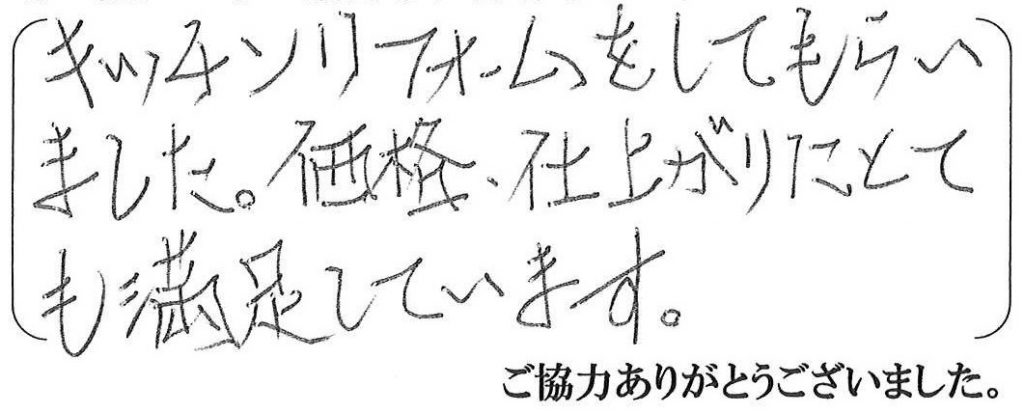 キッチンリフォームをしてもらい
ました。価格、仕上がりにとて
も満足しています。
ご協力ありがとうございました。